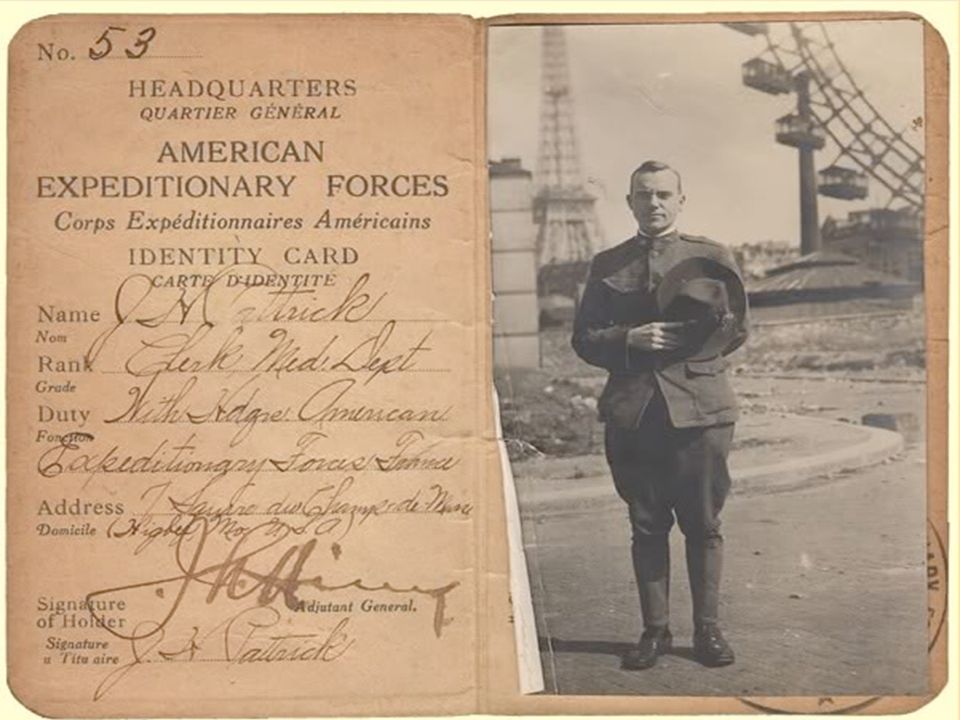 No. 53
HEADQUARTERS
QUARTIER GÉNÉRAL
AMERICAN
EXPEDITIONARY FORCES
Corps Expéditionnaires Américains
IDENTITY CARD
CARTE D'IDENTITÉ
Name J H Pattrick
Nom
Rank Clerk, Med. Dept
Grade
Duty With Hdqrs. American
Fonction
Expeditionary Forces France
Address 7 Square du Champ de Mars
Domicile (Higbee Mo. U.S.A)
Adjutant General.
Signature
of Holder
J. H Pattrick
Signature
u Titu aire